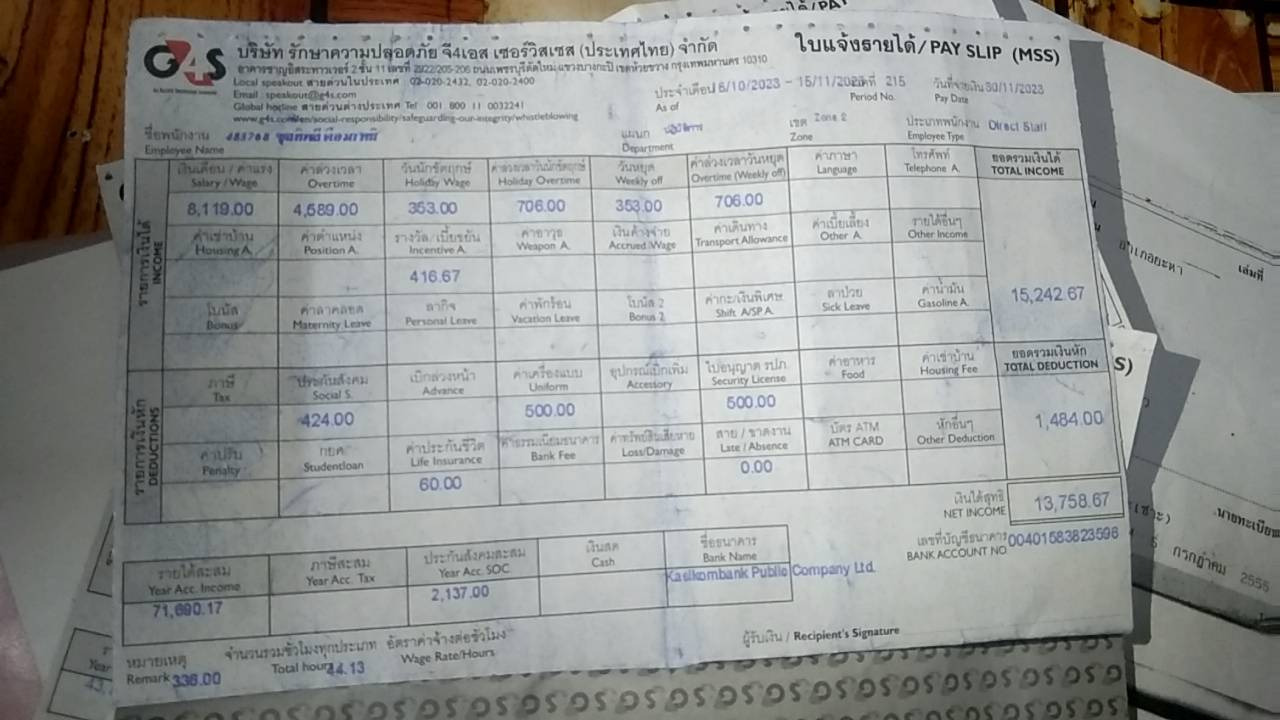 G4S
บริษัท รักษาความปลอดภัย จี4เอส เซอร์วิสเซส (ประเทศไทย) จำกัด
ใบแจ้งรายได้/PAY SLIP (MSS)
อาคารชาญอิสระทาวเวอร์ 2 ชั้น 11 เลขที่ 2922/205-206 ถนนเพชรบุรีตัดใหม่ แขวงบางกะปิ เขตห้วยขวาง กรุงเทพมหานคร 10310
Local speakout สายด่วนในประเทศ 02-020-2432, 02-020-2400
Email : speakout@g4s.com
Global hotline สายด่วนต่างประเทศ Tel 001 800 11 0032241
www.g4s.com/en/social-responsibility/safeguarding-our-integrity/whistleblowing
ประจำเดือน 6/10/2023 - 15/11/2023 215 วันที่จ่ายเงิน 30/11/2023
As of Period No. Pay Date
ชื่อพนักงาน แผนก เขต Zone 2 ประเภทพนักงาน Direct Staff
Employee Name Department Zone Employee Type
รายการเงินได้
INCOME
เงินเดือน / ค่าแรง ค่าล่วงเวลา วันนักขัตฤกษ์ ค่าล่วงเวลาวันนักขัตฤกษ์ วันหยุด ค่าล่วงเวลาวันหยุด ค่าภาษา โทรศัพท์ ยอดรวมเงินได้
Salary / Wage Overtime Holiday Wage Holiday Overtime Weekly off Overtime (Weekly off) Language Telephone A. TOTAL INCOME
8,119.00 4,589.00 353.00 706.00 353.00 706.00
ค่าเช่าบ้าน ค่าตำแหน่ง รางวัล/เบี้ยขยัน ค่าอาวุธ เงินค้างจ่าย ค่าเดินทาง ค่าเบี้ยเลี้ยง รายได้อื่นๆ
Housing A. Position A. Incentive A. Weapon A. Accrued Wage Transport Allowance Other A. Other Income
416.67
15,242.67
โบนัส ค่าลาคลอด ลากิจ ค่าพักร้อน โบนัส 2 ค่ากะ/เงินพิเศษ ลาป่วย ค่าน้ำมัน
Bonus Maternity Leave Personal Leave Vacation Leave Bonus 2 Shift A/SP A. Sick Leave Gasoline A.
รายการเงินหัก
DEDUCTIONS
ภาษี ประกันสังคม เบิกล่วงหน้า ค่าเครื่องแบบ อุปกรณ์เบิกเพิ่ม ใบอนุญาต รปภ. ค่าอาหาร ค่าเช่าบ้าน ยอดรวมเงินหัก
Tax Social S. Advance Uniform Accessory Security License Food Housing Fee TOTAL DEDUCTION
424.00 500.00 500.00 1,484.00
ค่าปรับ กยศ ค่าประกันชีวิต ค่าธรรมเนียมธนาคาร ค่าทรัพย์สินเสียหาย สาย / ขาดงาน บัตร ATM หักอื่นๆ
Penalty Studentloan Life Insurance Bank Fee Loss/Damage Late / Absence ATM CARD Other Deduction
60.00 0.00
เงินได้สุทธิ 13,758.67
NET INCOME
เลขที่บัญชีธนาคาร 00401583823598
BANK ACCOUNT NO
รายได้สะสม ภาษีสะสม ประกันสังคมสะสม เงินสด ชื่อธนาคาร
Year Acc. Income Year Acc. Tax Year Acc. SOC. Cash Bank Name
71,690.17 2,137.00 Kasikornbank Public Company Ltd.
หมายเหตุ จำนวนรวมชั่วโมงทุกประเภท อัตราค่าจ้างต่อชั่วโมง ผู้รับเงิน / Recipient's Signature
Remark 336.00 Total hour 44.13 Wage Rate/Hours
อำเภอยะหา เล่มที่
นายทะเบียน
5 กรกฎาคม 2555